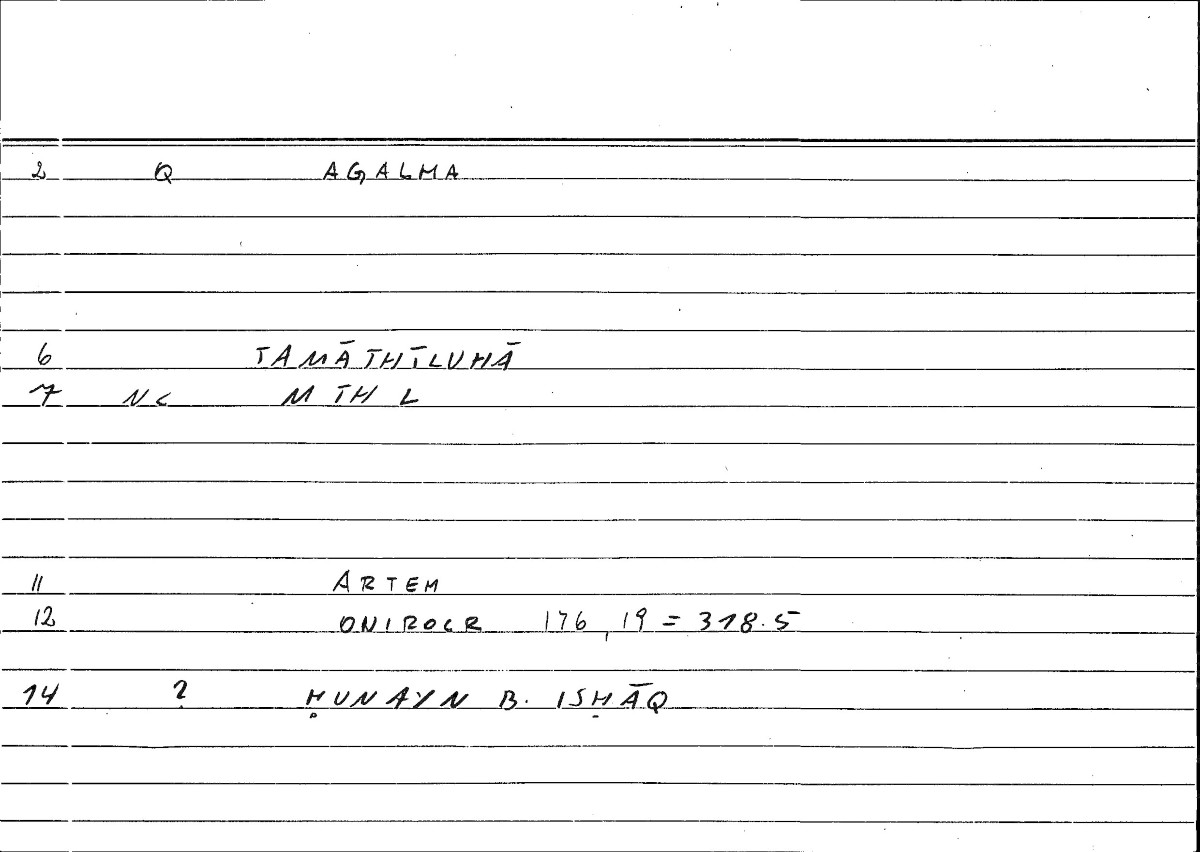 2 Q AGALMA
6 TAMĀTHĪLUHĀ
7 NC M TH L
11 ARTEM
12 ONIROCR 176,19 = 318.5
14 ? ḤUNAYN B. ISḤĀQ